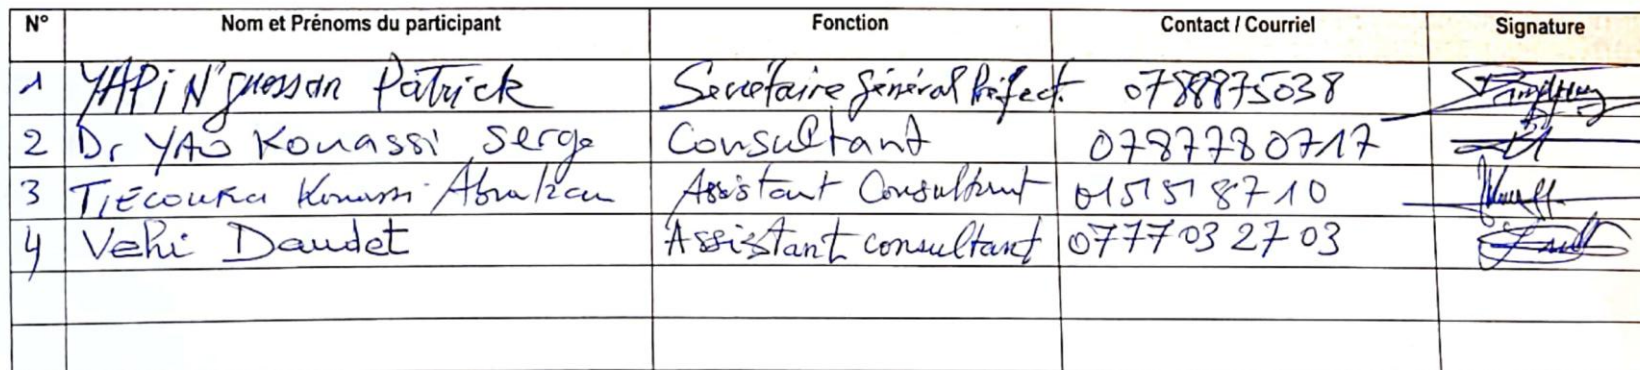 N° Nom et Prénoms du participant Fonction Contact / Courriel Signature
1 YAPI N'guessan Patrick Secrétaire général Préfect. 0788975038
2 Dr YAO Kouassi Serge Consultant 0787780717
3 TIECOURA Kouassi Abraham Assistant Consultant 0151518710
4 Vehi Daudet Assistant consultant 0777032703